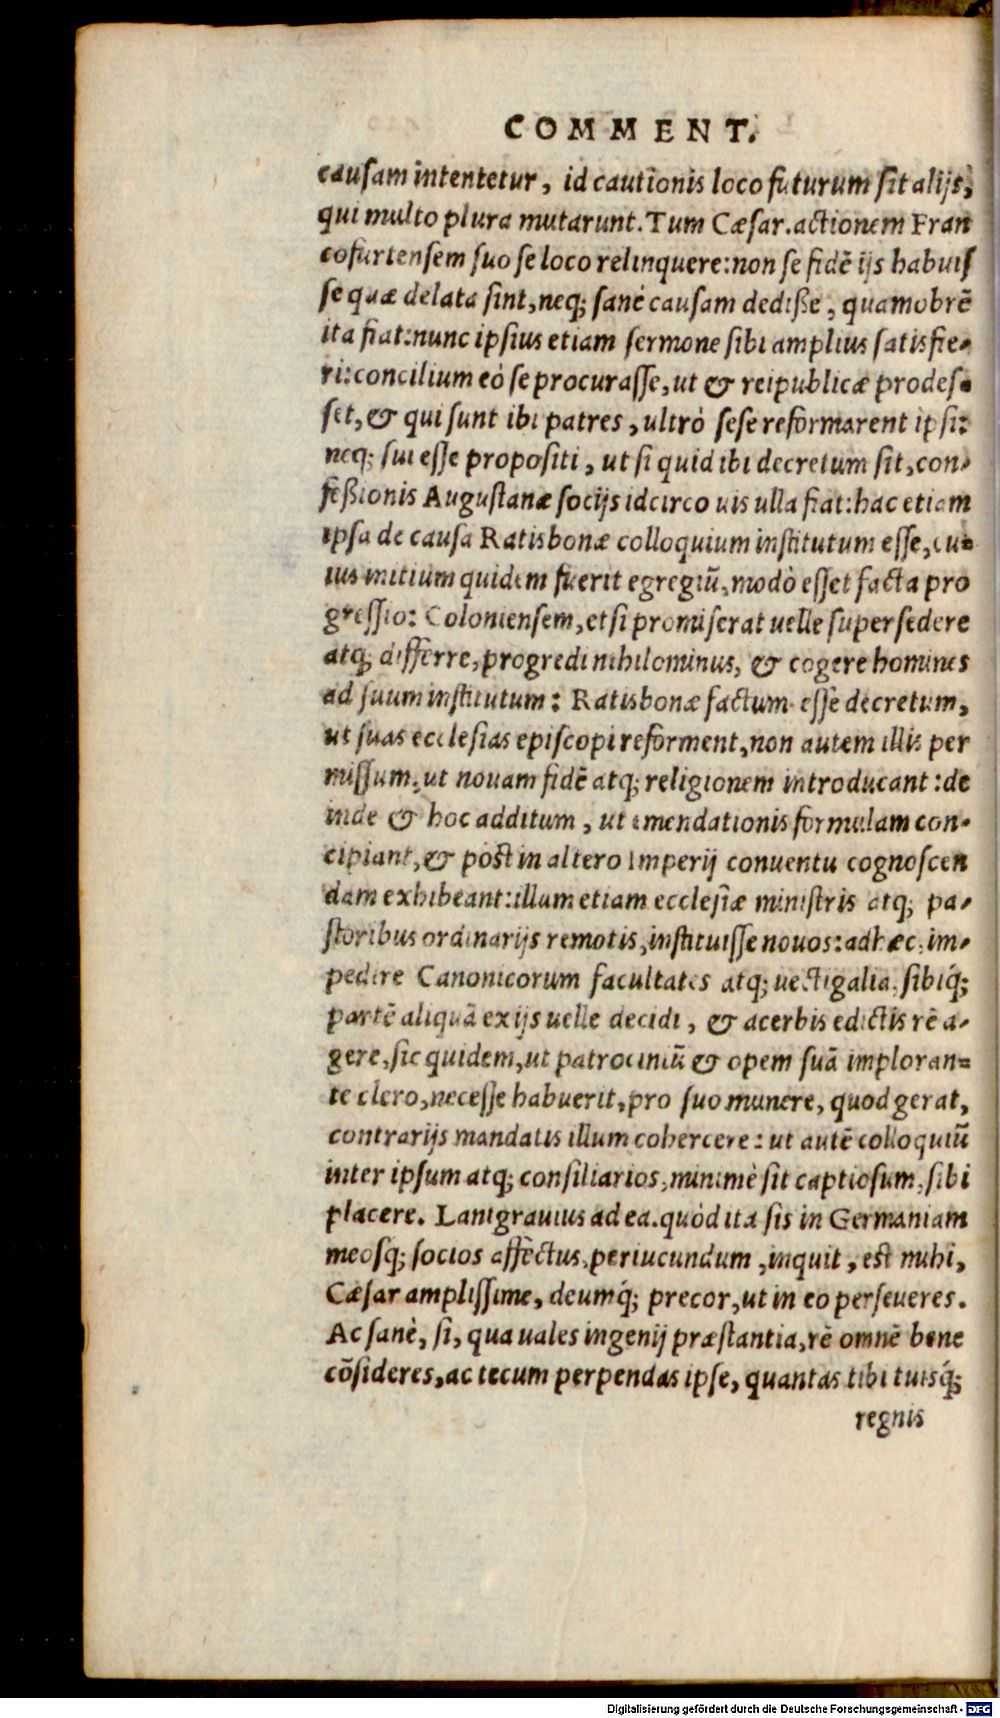 COMMENT.
causam intentetur, id cautionis loco futurum sit alijs,
qui multo plura mutarunt. Tum Cæsar. actionem Fran
cofurtensem suo se loco relinquere: non se fidē ijs habuis
se quæ delata sint, neq; sanè causam dediße, quamobrē
ita fiat: nunc ipsius etiam sermone sibi amplius satisfie-
ri: concilium eò se procurasse, ut & reipublicæ prodes-
set, & qui sunt ibi patres, ultrò sese reformarent ipsi:
neq; sui esse propositi, ut si quid ibi decretum sit, con-
feßionis Augustanæ socijs idcirco uis ulla fiat: hac etiam
ipsa de causa Ratisbonæ colloquium institutum esse, cu-
ius initium quidem fuerit egregiū, modò esset facta pro
gressio: Coloniensem, etsi promiserat uelle supersedere
atq; differre, progredi nihilominus, & cogere homines
ad suum institutum: Ratisbonæ factum esse decretum,
ut suas ecclesias episcopi reforment, non autem illis per
missum, ut nouam fidē atq; religionem introducant: de
inde & hoc additum, ut emendationis formulam con-
cipiant, & post in altero Imperij conuentu cognoscen
dam exhibeant: illum etiam ecclesiæ ministris atq; pa-
storibus ordinarijs remotis, instituisse nouos: ad hæc, im-
pedire Canonicorum facultates atq; uectigalia, sibiq́;
partē aliquā ex ijs uelle decidi, & acerbis edictis rē a-
gere, sic quidem, ut patrociniū & opem suā imploran-
te clero, necesse habuerit, pro suo munere, quod gerat,
contrarijs mandatis illum cohercere: ut autē colloquiū
inter ipsum atq; consiliarios, minimè sit captiosum, sibi
placere. Lantgrauius ad ea. quòd ita sis in Germaniam
meosq; socios affectus, periucundum, inquit, est mihi,
Cæsar amplissime, deumq́; precor, ut in eo perseueres.
Ac sanè, si, qua uales ingenij præstantia, rē omnē bene
cōsideres, ac tecum perpendas ipse, quantas tibi tuisq́;
regnis
Digitalisierung gefördert durch die Deutsche Forschungsgemeinschaft - DFG